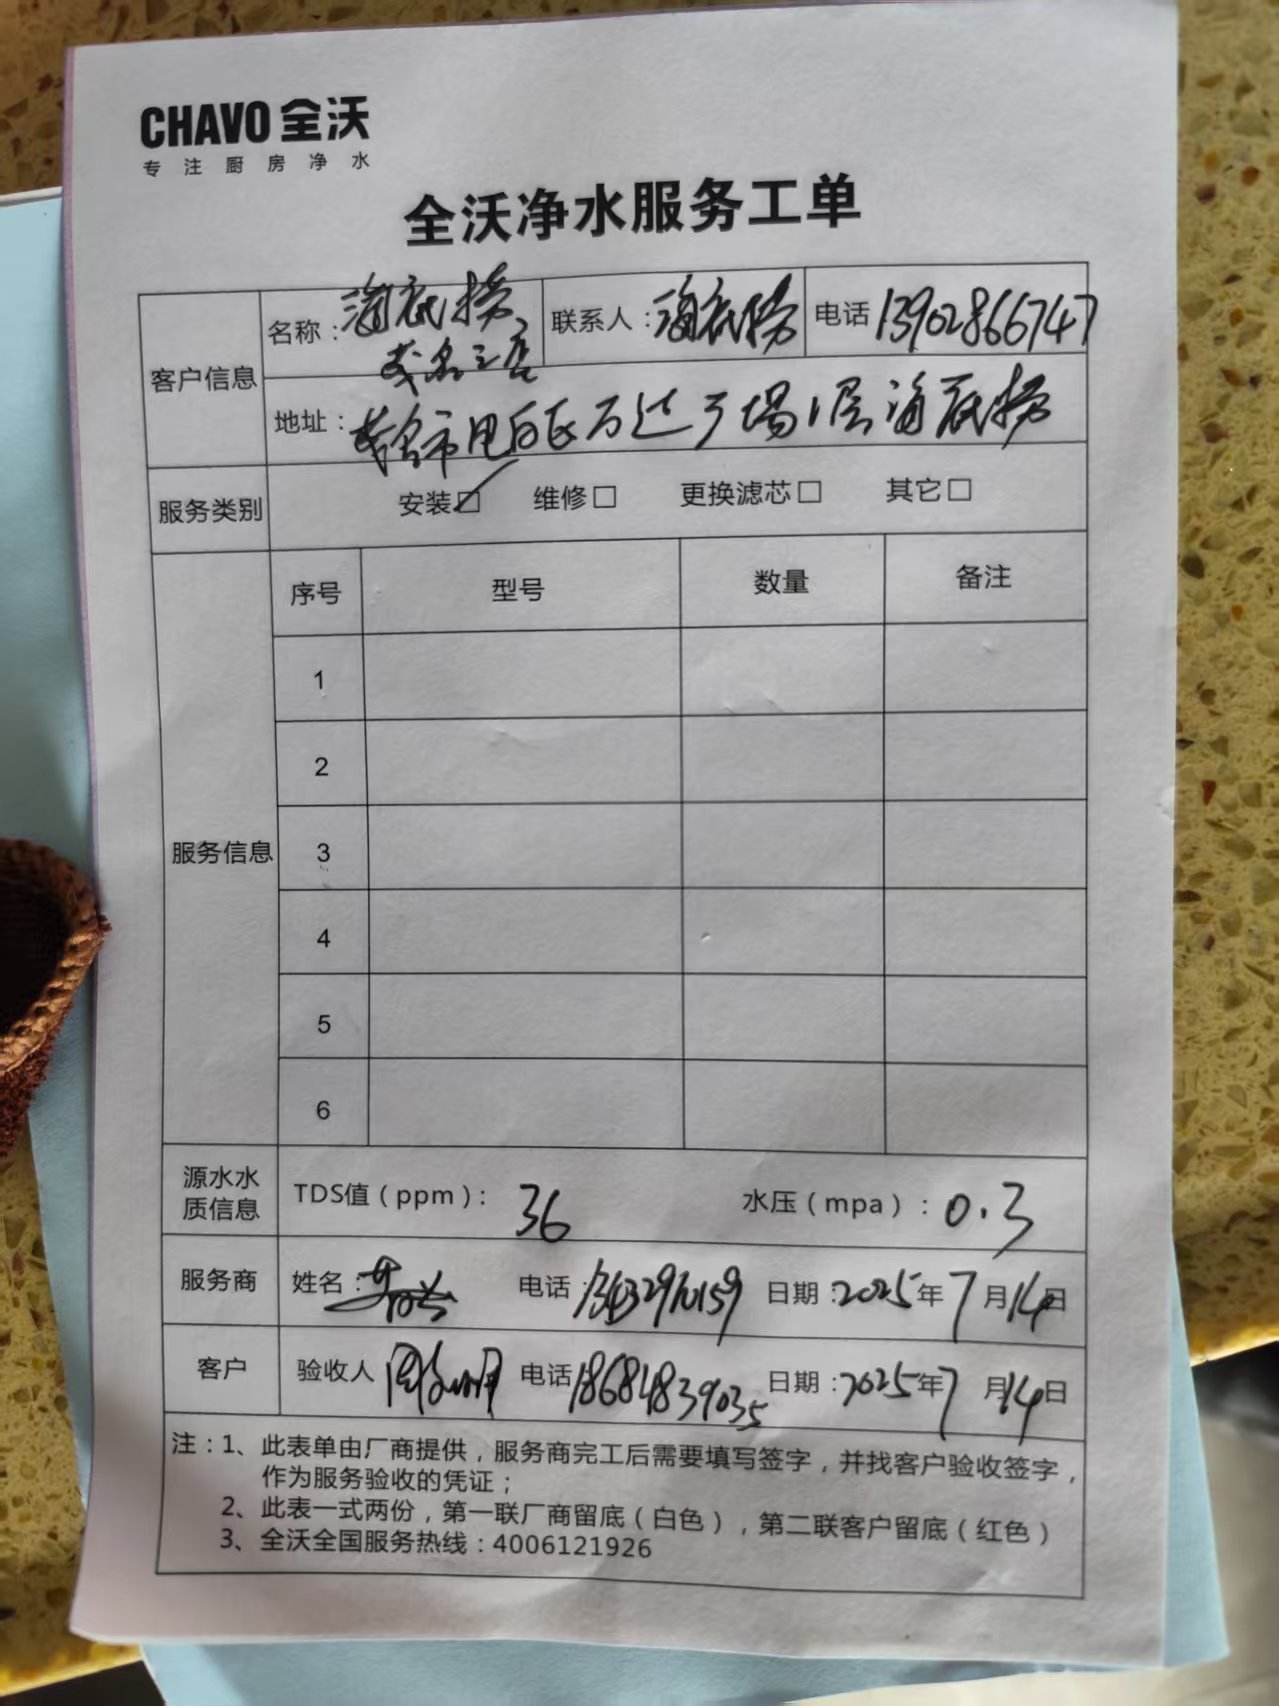 CHAVO 全沃
专注厨房净水
全沃净水服务工单
客户信息 名称：海底捞茂名三店 联系人：海底捞 电话 13902866747
地址：茂名市电白区万达广场1层海底捞
服务类别 安装☑ 维修□ 更换滤芯□ 其它□
服务信息 序号 型号 数量 备注
1
2
3
4
5
6
源水水质信息 TDS值（ppm）：36 水压（mpa）：0.3
服务商 姓名： 电话： 日期：2025年7月14日
客户 验收人 电话 18684839035 日期：2025年7月14日
注：1、此表单由厂商提供，服务商完工后需要填写签字，并找客户验收签字，
作为服务验收的凭证；
2、此表一式两份，第一联厂商留底（白色），第二联客户留底（红色）
3、全沃全国服务热线：4006121926